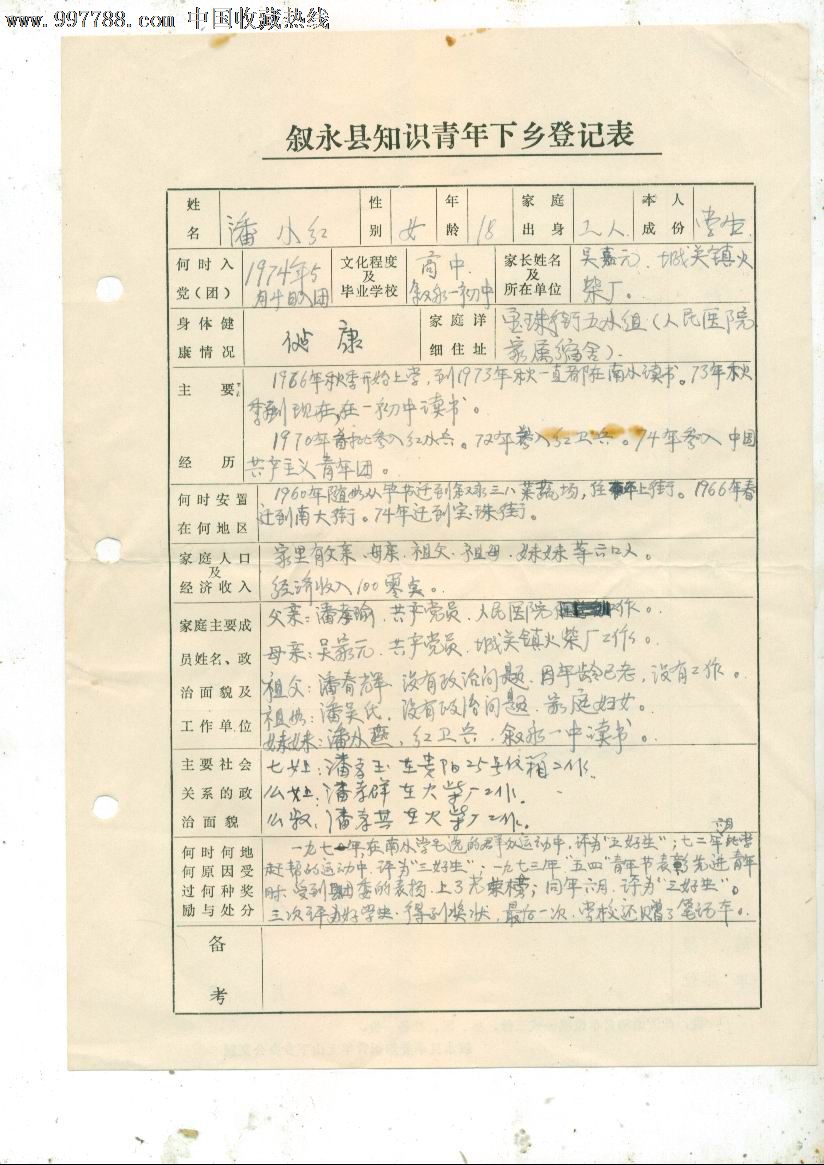 www.997788.com 中国收藏热线
叙永县知识青年下乡登记表
姓名 潘小红 性别 女 年龄 18 家庭出身 工人. 本人成份 学生.
何时入党(团) 1974年5月 入团 文化程度及毕业学校 高中. 叙永一初中 家长姓名及所在单位 吴嘉元. 城关镇火柴厂。
身体健康情况 健康 家庭详细住址 宝珠街五小组(人民医院
家属宿舍).
主要经历 1966年秋季开始上学,到1973年秋一直都在南小读书。73年秋
季到现在,在一初中读书。
1970年首批参入红小兵。72年参入红卫兵。74年参入中国
共产主义青年团。
何时安置在何地区 1960年随母从毕节迁到叙永三八菜蔬场,住 上街。1966年春
迁到南大街。74年迁到宝珠街。
家庭人口及经济收入 家里有父亲、母亲、祖父、祖母、妹妹等六口人。
经济收入100零点。
家庭主要成员姓名、政治面貌及工作单位 父亲:潘孝瑜.共产党员.人民医院 工作。
母亲:吴嘉元.共产党员.城关镇火柴厂工作。
祖父:潘春辉 没有政治问题.因年龄已老,没有工作。
祖母:潘吴氏,没有政治问题.家庭妇女。
妹妹:潘小燕,红卫兵,叙永一中读书。
主要社会关系的政治面貌 七女上:潘孝玉 在贵阳25号信箱工作.
潘孝群 在火柴厂工作.
潘孝其 在火柴厂工作.
何时何地何原因受过何种奖励与处分 一九七一年,在南小学毛选的群众运动中,评为“五好生”;七二年
赶帮的运动中.评为“三好生”.一九七三年“五四”青年节表彰先进青年
时.受到团委的表扬.上了光荣榜;同年六月.评为“三好生”。
三次评为好学生.得到奖状,最后一次.学校还赠了笔记本。
备考